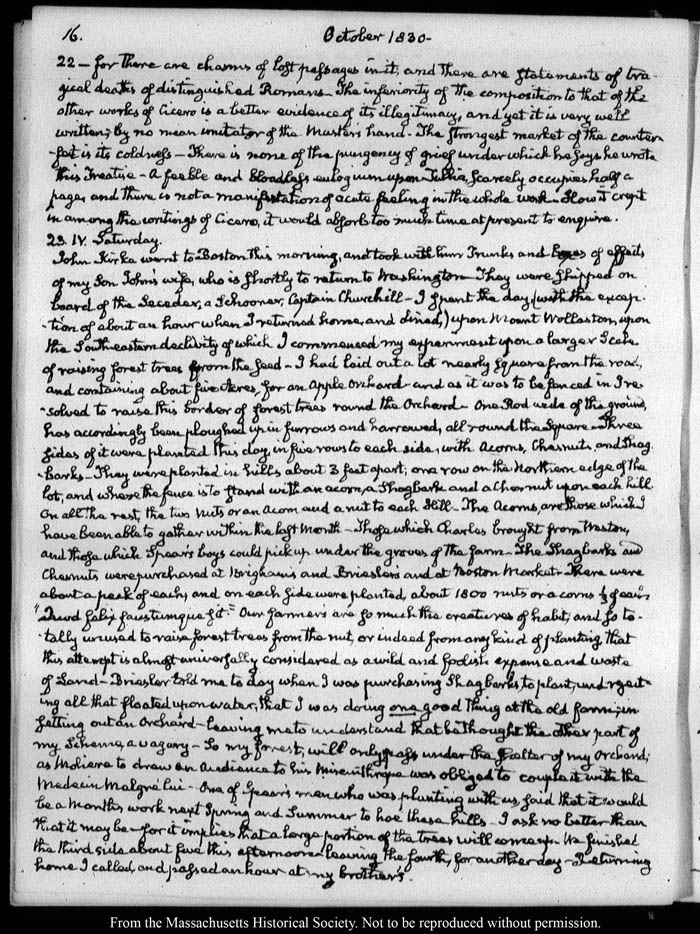 16. October 1830-
22 - for there are charms of lost passages in it, and there are statements of tra-
gical deaths of distinguished Romans - The inferiority of the composition to that of the
other works of Cicero is a better evidence of its illegitimacy, and yet it is very well
written; by no mean imitator of the Masters hand - The strongest market of the counter-
-feit is its coldness - There is none of the pungency of grief under which he says he wrote
this Treatise - A feeble and bloodless eulogium upon Tullia, scarcely occupies half a
page, and there is not a manifestation of acute feeling in the whole work - How it crept
in among the writings of Cicero, it would absorb too much time at present to enquire.
23. IV. Saturday.
John Kirke went to Boston this morning, and took with him Trunks and Boxes of effects
of my Son John's wife, who is shortly to return to Washington - They were shipped on
board of the Seceder, a Schooner, Captain Churchill - I spent the day (with the excep-
-tion of about an hour when I returned home, and dined,) upon Mount Wollaston, upon
the South-eastern declivity of which I commenced my experiment upon a larger Scale
of raising forest trees from the seed - I had laid out a lot nearly square from the road,
and containing about five Acres, for an Apple Orchard - and as it was to be fenced in I re-
-solved to raise this border of forest trees round the Orchard - One Rod wide of the ground,
has accordingly been ploughed up in furrows and harrowed, all round the Square - Three
sides of it were planted this day, in five rows to each side, with Acorns, Chesnuts and Shag-
-barks - They were planted in hills about 3 feet apart; one row on the Northern edge of the
lot, and where the fence is to stand with an acorn, a Shagbark and a Chesnut upon each hill
On all the rest, the two Nuts or an Acorn and a nut to each Hill - The Acorns, are those which I
have been able to gather within the last Month - Those which Charles brought from Weston,
and those which Spear's boys could pick up under the groves of the farm - The Shagbarks and
Chesnuts were purchased at Brigham's and Briesler's and at Boston Market - There were
about a peck of each, and on each side were planted, about 1800 nuts or acorns
"Quod felix faustumque sit." Our farmers are so much the creatures of habit, and so to-
-tally unused to raise forest trees from the nut, or indeed from any kind of planting, that
this attempt is almost universally considered as a wild and foolish expense and waste
of Land - Briesler told me to day when I was purchasing Shagbarks to plant, and reject-
ing all that floated upon water, that I was doing one good thing at the old farm; in
setting out an Orchard - leaving me to understand that he thought the other part of
my Scheme, a vagary - So my forest, will only pass under the shelter of my Orchard;
as Moliere to draw an Audience to his Misanthrope was obliged to couple it with the
Medecin Malgré lui - One of Spear's men who was planting with us, said that it would
be a Months work next Spring and Summer to hoe these hills - I ask no better than
that it may be - for it implies that a large portion of the trees will come up. We finished
the third side about five this afternoon leaving the fourth, for another day - Returning
home I called, and passed an hour at my brother's.
From the Massachusetts Historical Society. Not to be reproduced without permission.